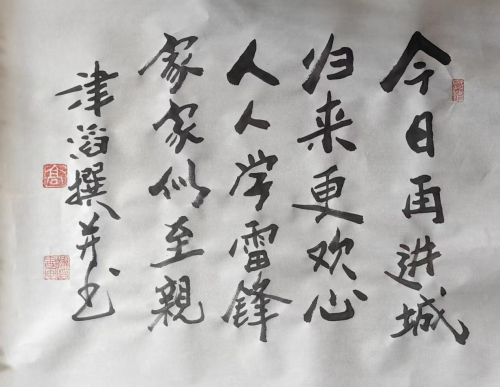 今日再进城
归来更欢心
人人学雷锋
家家似至親
津滔撰并书